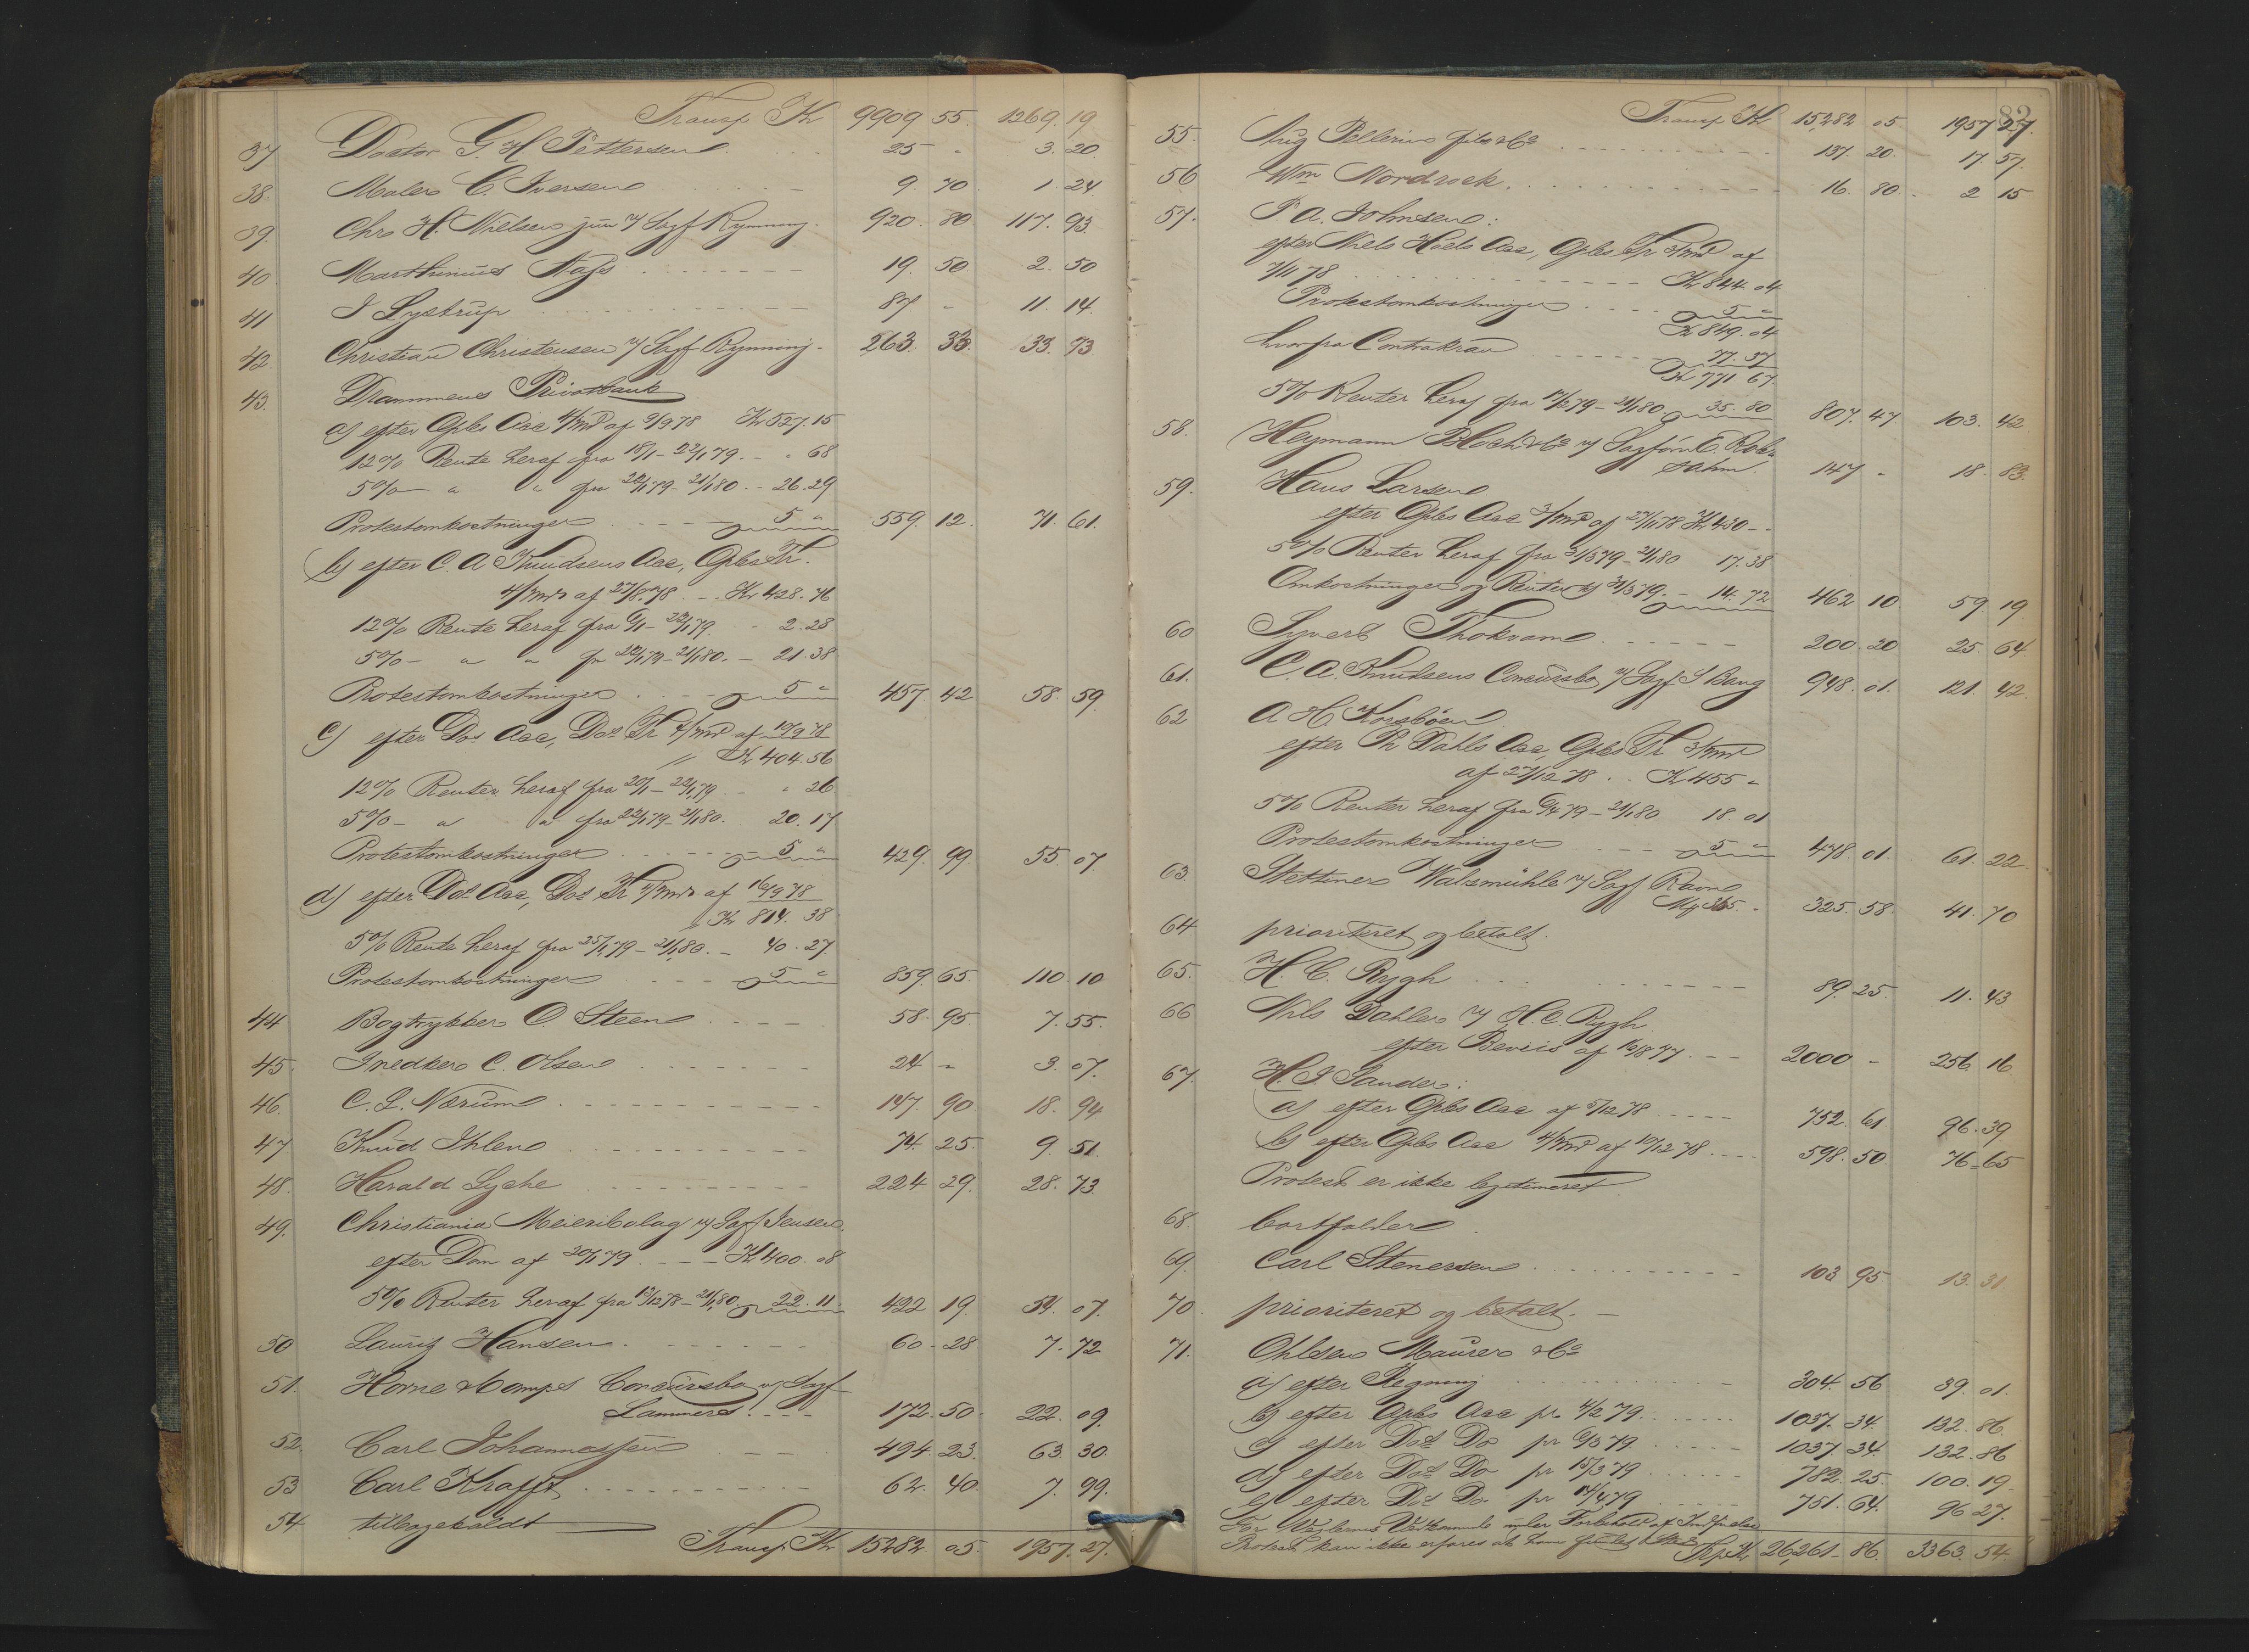 Transp Kr 9909 55. 1269. 19
37 Doctor G. H. Pettersen 25 - 3. 20
38. Maler C. Iversen 9. 70 1. 24
39. Chr. H. Nielsen jun v/ Sagf Rynning. 920. 80 117. 93
40 Marthinius Næss 19. 50 2. 50
41 J Lystrup 87. - 11. 14.
42. Christian Christensen v/ Sagf Rynning. 263. 33. 33. 73
43. Drammens Privatbank
a) efter Gples Acc 4/md af 9/9 78 Kr 527. 15
12% Rente heraf fra 18/1 - 22/1 79. - " 68
5% - " " fra 22/1 79 - 21/1 80. - 26. 29
Protestomkostninger 5 " 559. 12. 71. 61.
b) efter C. A Knudsens Acc, Gples Tr.
4/md af 27/8. 78. - Kr 428. 76
12% Rente heraf fra 6/1 - 22/1 79. - 2. 28
5% - " " fra 22/1 79 - 21/1 80. - 21. 38
Protestomkostninger 5 " 457. 42 58. 59.
c) efter Dos Acc, Dos Tr 4/md af 10/9 78
" Kr 404. 56
12% Renter heraf fra 20/1 - 22/1 79 - " 26
5% - " " fra 22/1 79 - 21/1 80. 20. 17
Protestomkostninger 5 " 429. 99. 55. 07
d) efter Dos Acc, Dos Tr 4/md af 16/9 78
Kr 814. 38
5% Rente heraf fra 25/1 79 - 21/1 80. - 40. 27.
Protestomkostninger 5 " 859. 65 110. 10
44 Bogtrykker O. Steen 58. 95. 7. 55.
45. Snedker C. Olsen 24 - 3. 07.
46. C. L. Nærum 147. 90. 18. 94
47 Knud Ihlen 74. 25. 9. 51.
48. Harald Lyche 224 29. 28. 73.
49. Christiania Meieribolag v/ Sagf Jensen.
efter Dom af 20/1 79 Kr 400. 08
5% Renter heraf fra 13/12 78 - 21/1 80 22. 11. 422 19. 54. 07.
50 Lauritz Hansen. 60 - 28 7. 72
51. Horne & Comps Concursbo v/ Sagf
Lammers. 172. 50. 22. 09.
52. Carl Johannessen 494. 23. 63. 30
53 Carl Krafft 62. 40. 7. 99.
54. tilbagekaldt
Transp. Kr 15282. 05. 1957. 27.
82
Transp Kr 15,282 05. 1957 27.
55. Aug Pellerin fils & Co 137. 20 17. 57.
56 Wm Nordrock. 16. 80. 2 15
57. P. A. Johnsen:
efter Niels Hoels Acc, Gples Tr 3/md af
7/11 78 Kr 844. 04
Protestomkostninger 5 "
Kr 849. 04
hvorfra Contrakrav 77. 37
Kr 771 67.
5% Renter heraf fra 17/2 79 - 21/1 80 35. 80 807. 47 103. 42
58. Heymann Bloch & Co v/ Sagfører E. Rob
sahm. 147 - 18. 83.
59. Hans Larsen
efter Gples Acc 3/md af 27/11 78 Kr 430 - -
5% Renter heraf fra 31/3 79 - 21/1 80 17. 38
Omkostninger og Renter til 31/3 79. - 14. 72 462 10 59. 19
60 Syvert Thokvam 200. 20 25. 64
61. C. A. Knudsens Concursbo v/ Sagf S Bang 948. 01. 121. 42
62 A H. Korsbøen
efter Th Dahls Acc, Gples Tr 3/md
af 27/12 78. . Kr 455 "
5% Renter heraf fra 6/4 79 - 21/1 80 18. 01
Protestomkostninger 5 " 478. 01. 61. 22.
63. Stettiner Walsmühle v/ Sagf Ravn
325. 58. 41. 70
64 prioriteret og betalt.
65. H. C. Rygh 89. 25. 11. 43
66 Nils Dahler v/ H. C. Rygh
efter Beviis af 16/8 77. - - 2000 - 256. 16.
67. H. J. Sander:
a) efter Gples Acc af 5/12 78 752. 61 96. 39
b) efter Gples Acc 4/md af 10/12 78. 598. 50 76. 65
Protest er ikke legitimeret
68. bortfalder
69. Carl Stenersen 103 95 13. 31.
70. prioriteret og betalt. -
71. Ohlsen Maurer & Co
a) efter Regning 304. 56 39. 01.
b) efter Gples Acc pr 4/2 79. 1037. 34. 132. 86.
c) efter Dos Do pr 6/3 79. 1037. 34. 132. 86
d) efter Dos Do pr 15/3 79 782. 25. 100. 19.
e) efter Dos Do pr 14/4 79 751. 64. 96 27.
For Vexlernes Vedkommende under Forbehold af Indfrielse
Protest kan ikke erfares at have fundet Sted
Trsp. Kr 26,261 - 86. 3363. 54